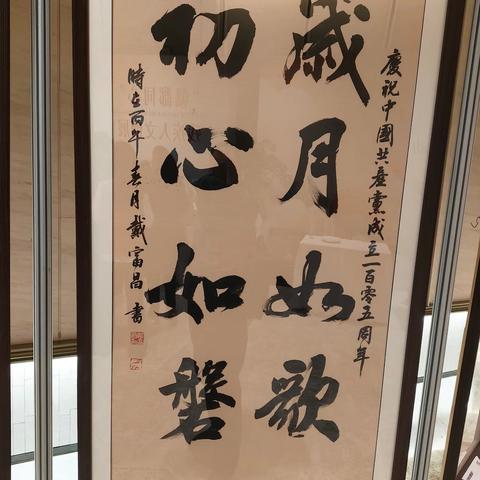 慶祝中國共產黨成立一百零五周年
歲月如歌
初心如磐
時在丙午春月戴富昌書